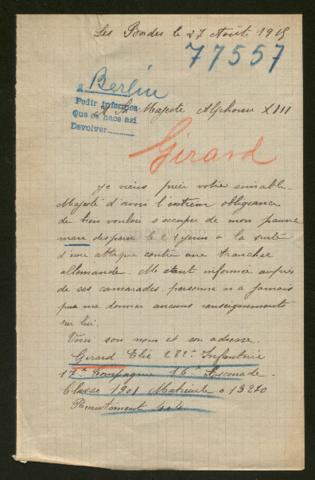 Les Bordes le 27 Août 1915
77557
A Berlin
Pedir informes
Que se hace así
Devolver
A Sa Majesté Alphonse XIII
Girard
je viens prier votre aimable
Majesté d'avoir l'extrême obligeance
de bien vouloir s'occuper de mon pauvre
mari disparu le 21 juin à la suite
d'une attaque contre une tranchée
allemande. M'étant informer auprès
de ses camarades personne n'a jamais
pu me donner aucuns renseignements
sur lui.
Voici son nom et son adresse.
Girard Elie 282e Infanterie
17e Compagnie 16e Escouade
Classe 1901 Matricule 013270
Recrutement